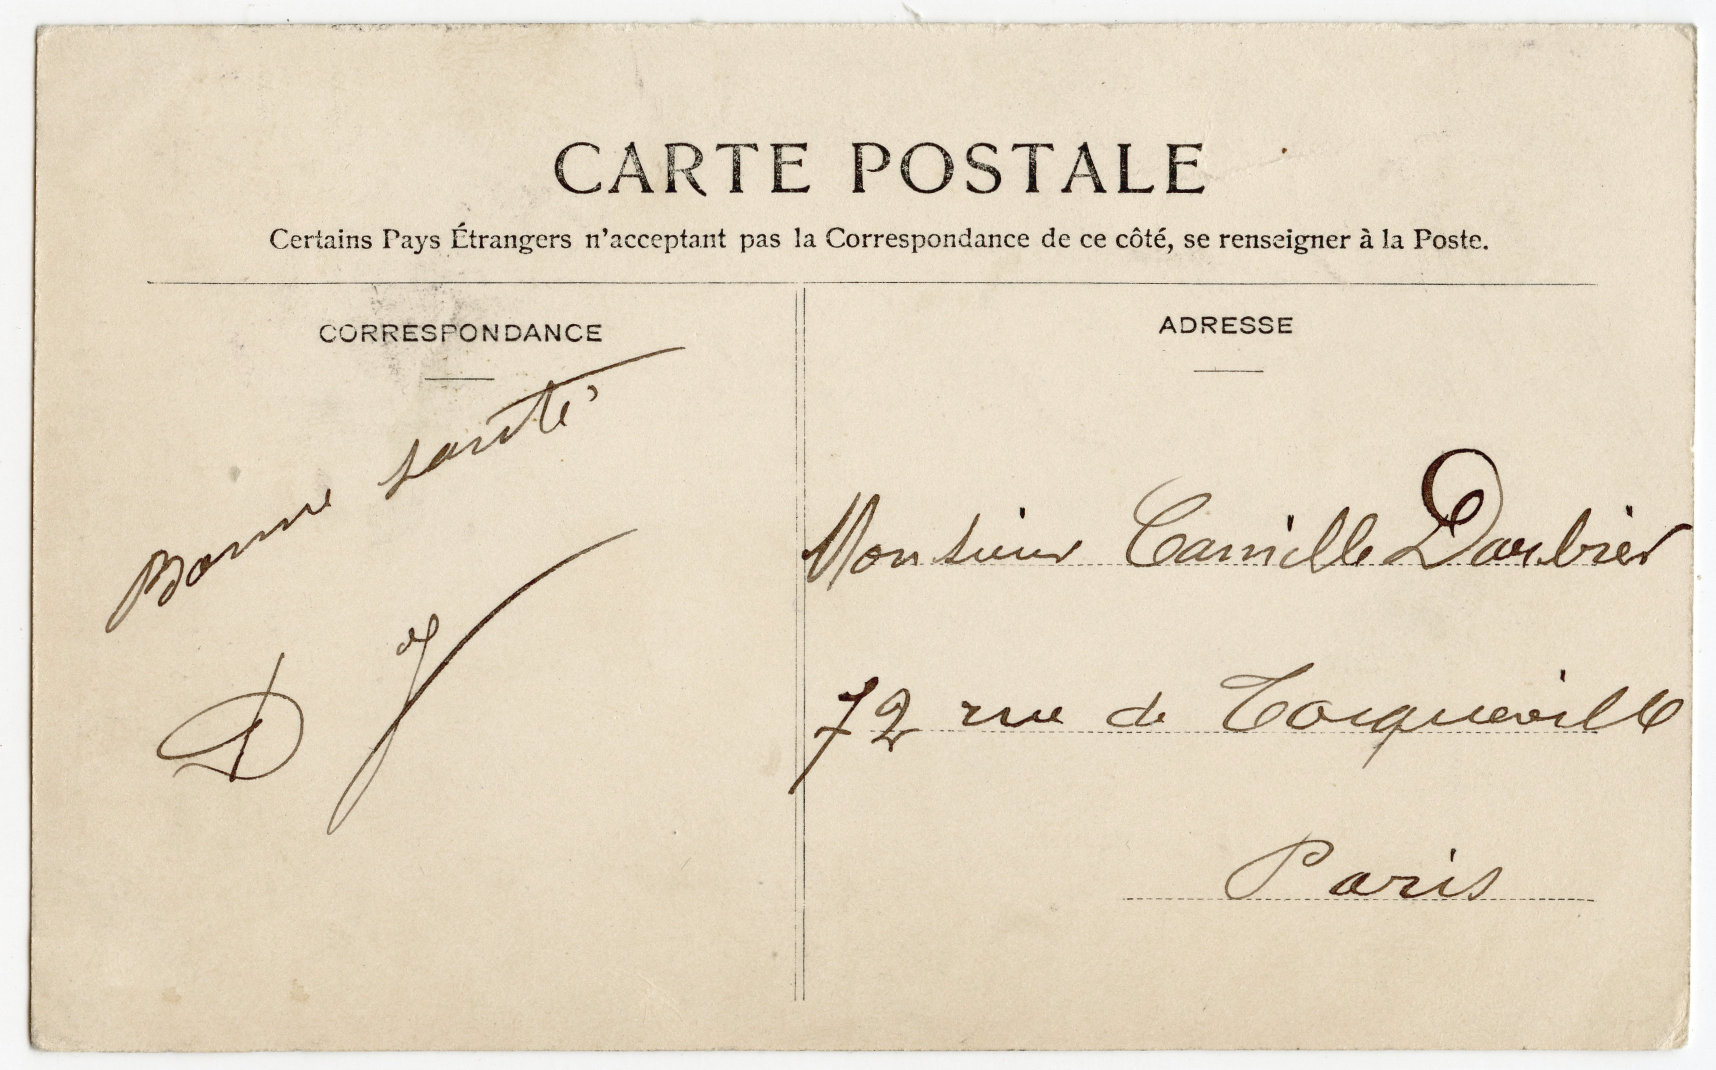 CARTE POSTALE
Certains Pays Étrangers n'acceptant pas la Correspondance de ce côté, se renseigner à la Poste.
CORRESPONDANCE
Bonne santé
D
ADRESSE
Monsieur Camille Daubier
72 rue de Tocqueville
Paris